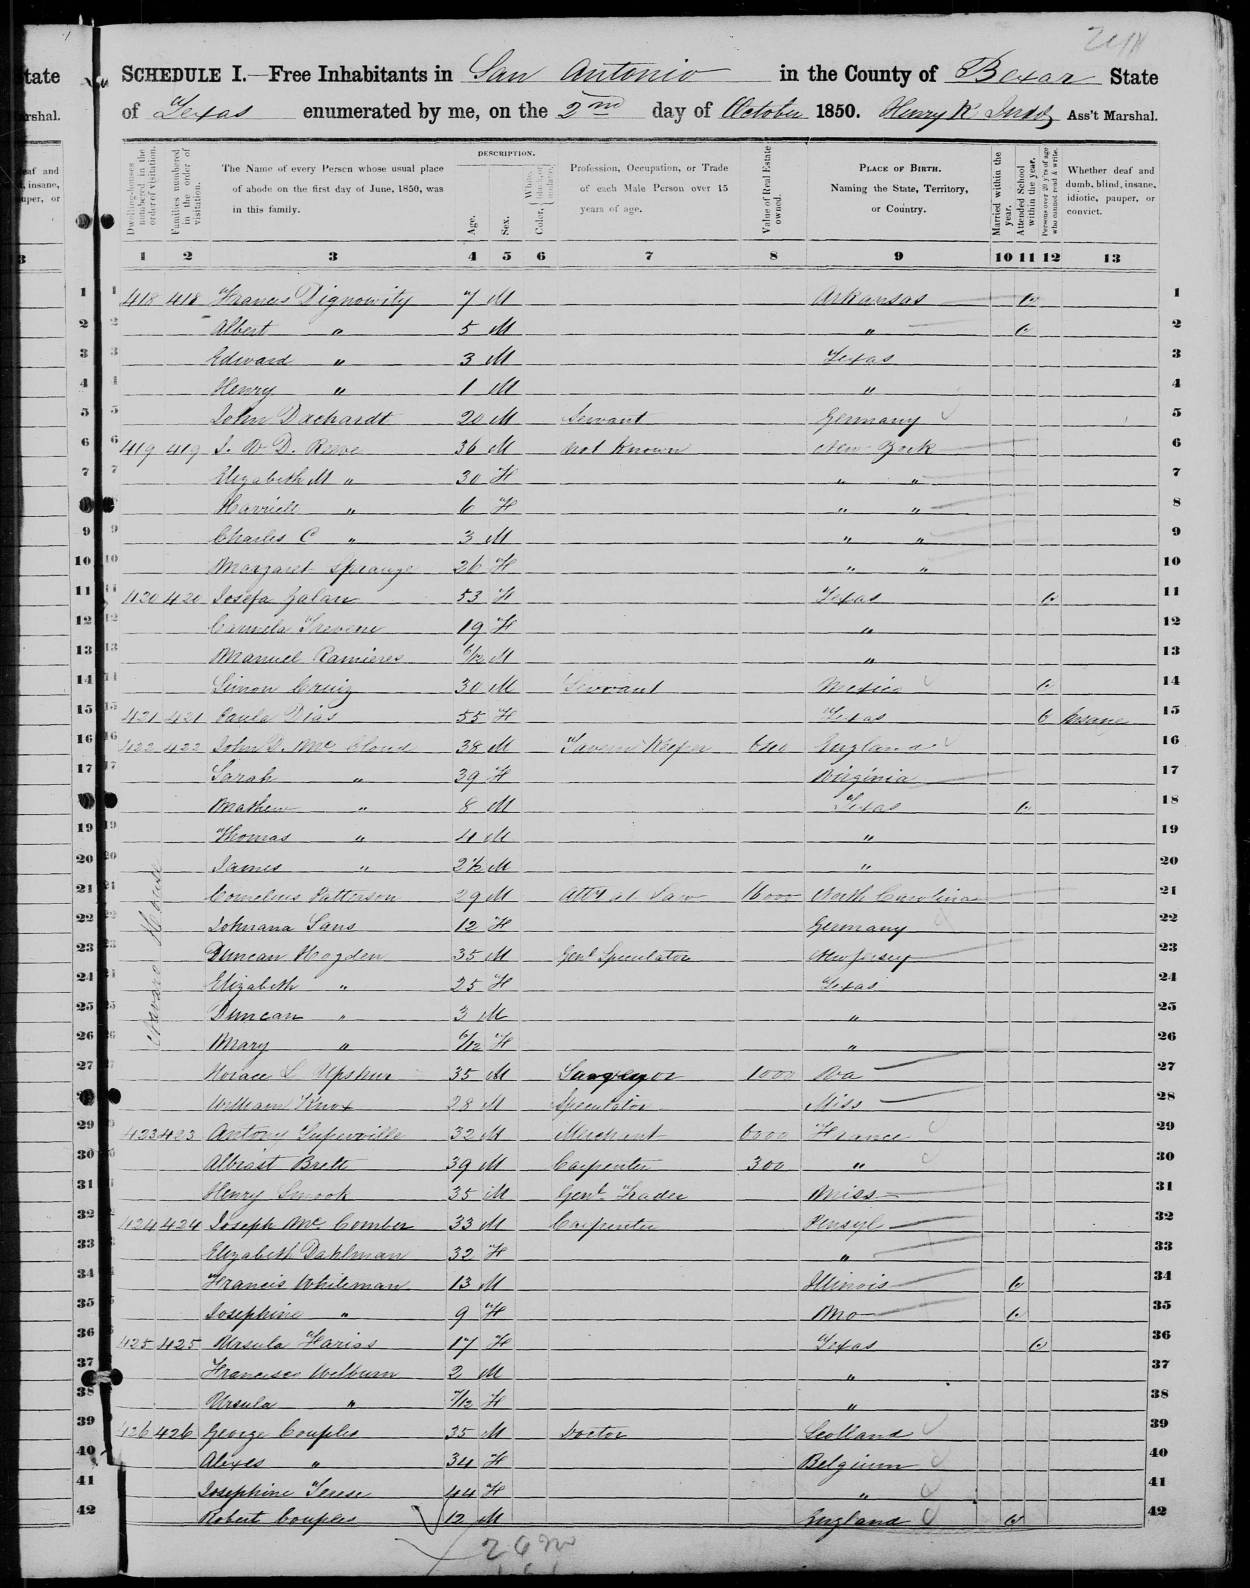 SCHEDULE I.—Free Inhabitants in San Antonio in the County of Bexar State
of Texas enumerated by me, on the 2nd day of October 1850. Henry K Ass't Marshal.
Dwelling-houses numbered in the order of visitation.
Families numbered in the order of visitation.
The Name of every Person whose usual place of abode on the first day of June, 1850, was in this family.
DESCRIPTION.
Age.
Sex.
Color, White, black, or mulatto.
Profession, Occupation, or Trade of each Male Person over 15 years of age.
Value of Real Estate owned.
PLACE OF BIRTH. Naming the State, Territory, or Country.
Married within the year.
Attended School within the year.
Persons over 20 y'rs of age who cannot read & write.
Whether deaf and dumb, blind, insane, idiotic, pauper, or convict.
1 2 3 4 5 6 7 8 9 10 11 12 13
1 418 418 Francis Dignowity 7 M Arkansas 1
2 Albert " 5 M " 2
3 Edward " 3 M Texas 3
4 Henry " 1 M " 4
5 John Dachardt 20 M Servant Germany 5
6 419 419 J. W D. Reeve 36 M Not Known New York 6
7 Elizabeth M " 30 F " " 7
8 Harriett " 6 F " " 8
9 Charles C " 3 M " " 9
10 Margaret Sprauge 26 F " " 10
11 420 420 Josefa Galan 53 F Texas 11
12 Carmela Trevene 19 F " 12
13 Manuel Ramieres 6/12 M " 13
14 Simon Cruiz 30 M Servant Mexico 14
15 421 421 Paula Dias 55 F Texas Insane 15
16 422 422 John D. McCloud 38 M Tavern Keeper England 16
17 Sarah " 39 F Virginia 17
18 Mathew " 8 M Texas 18
19 Thomas " 4 M " 19
20 James " 2½ M " 20
21 Cornelius Patterson 29 M Atty at Law 16000 North Carolina 21
22 Johnana Sans 12 F Germany 22
23 Duncan Hogden 35 M Genl Speculator New Jersey 23
24 Elizabeth " 25 F Texas 24
25 Duncan " 3 M " 25
26 Mary " 6/12 F " 26
27 Horace L Upshur 35 M Surveyor 1000 Va 27
28 William Knox 28 M Speculator Miss 28
29 423 423 Antony Superville 32 M Merchant 6000 France 29
30 39 M Carpenter 300 " 30
31 Henry Smock 35 M Genl Trader Miss 31
32 424 424 Joseph McComber 33 M Carpenter Pensyl 32
33 Elizabeth Dahlman 32 F " 33
34 Francis Whiteman 13 M Illinois 34
35 Josephine " 9 F Mo 35
36 425 425 Ursula Farias 17 F Texas 36
37 Francisco Welburn 2 M " 37
38 Ursula " 7/12 F " 38
39 426 426 George Couples 35 M Doctor Scotland 39
40 Alexes " 34 F Belgium 40
41 Josephine Terese 44 F " 41
42 Robert Couples 12 M England 42